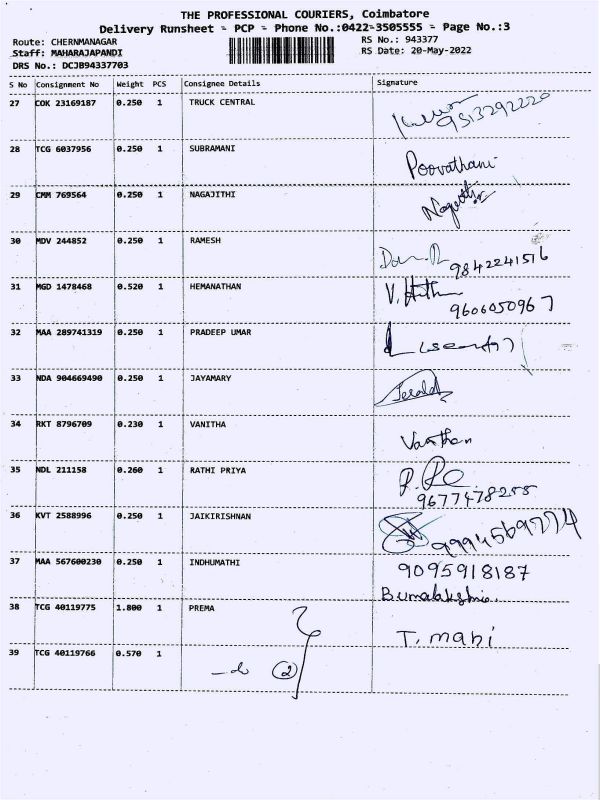 THE PROFESSIONAL COURIERS, Coimbatore
Delivery Runsheet - PCP - Phone No.:0422-3505555 - Page No.:3
Route: CHERNMANAGAR RS No.: 943377
Staff: MAHARAJAPANDI RS Date: 20-May-2022
DRS No.: DCJB94337703
S No Consignment No Weight PCS Consignee Details Signature
27 COK 23169187 0.250 1 TRUCK CENTRAL
9513292220
28 TCG 6037956 0.250 1 SUBRAMANI
Poovathani
29 CMM 769564 0.250 1 NAGAJITHI
30 MDV 244852 0.250 1 RAMESH
9842241516
31 MGD 1478468 0.520 1 HEMANATHAN
9606050967
32 MAA 289741319 0.250 1 PRADEEP UMAR
33 NDA 904669490 0.250 1 JAYAMARY
Jerald
34 RKT 8796709 0.230 1 VANITHA
35 NDL 211158 0.260 1 RATHI PRIYA
9677478255
36 KVT 2588996 0.250 1 JAIKIRISHNAN
9994569774
37 MAA 567600230 0.250 1 INDHUMATHI 9095918187
38 TCG 40119775 1.800 1 PREMA
T. mani
39 TCG 40119766 0.570 1
2